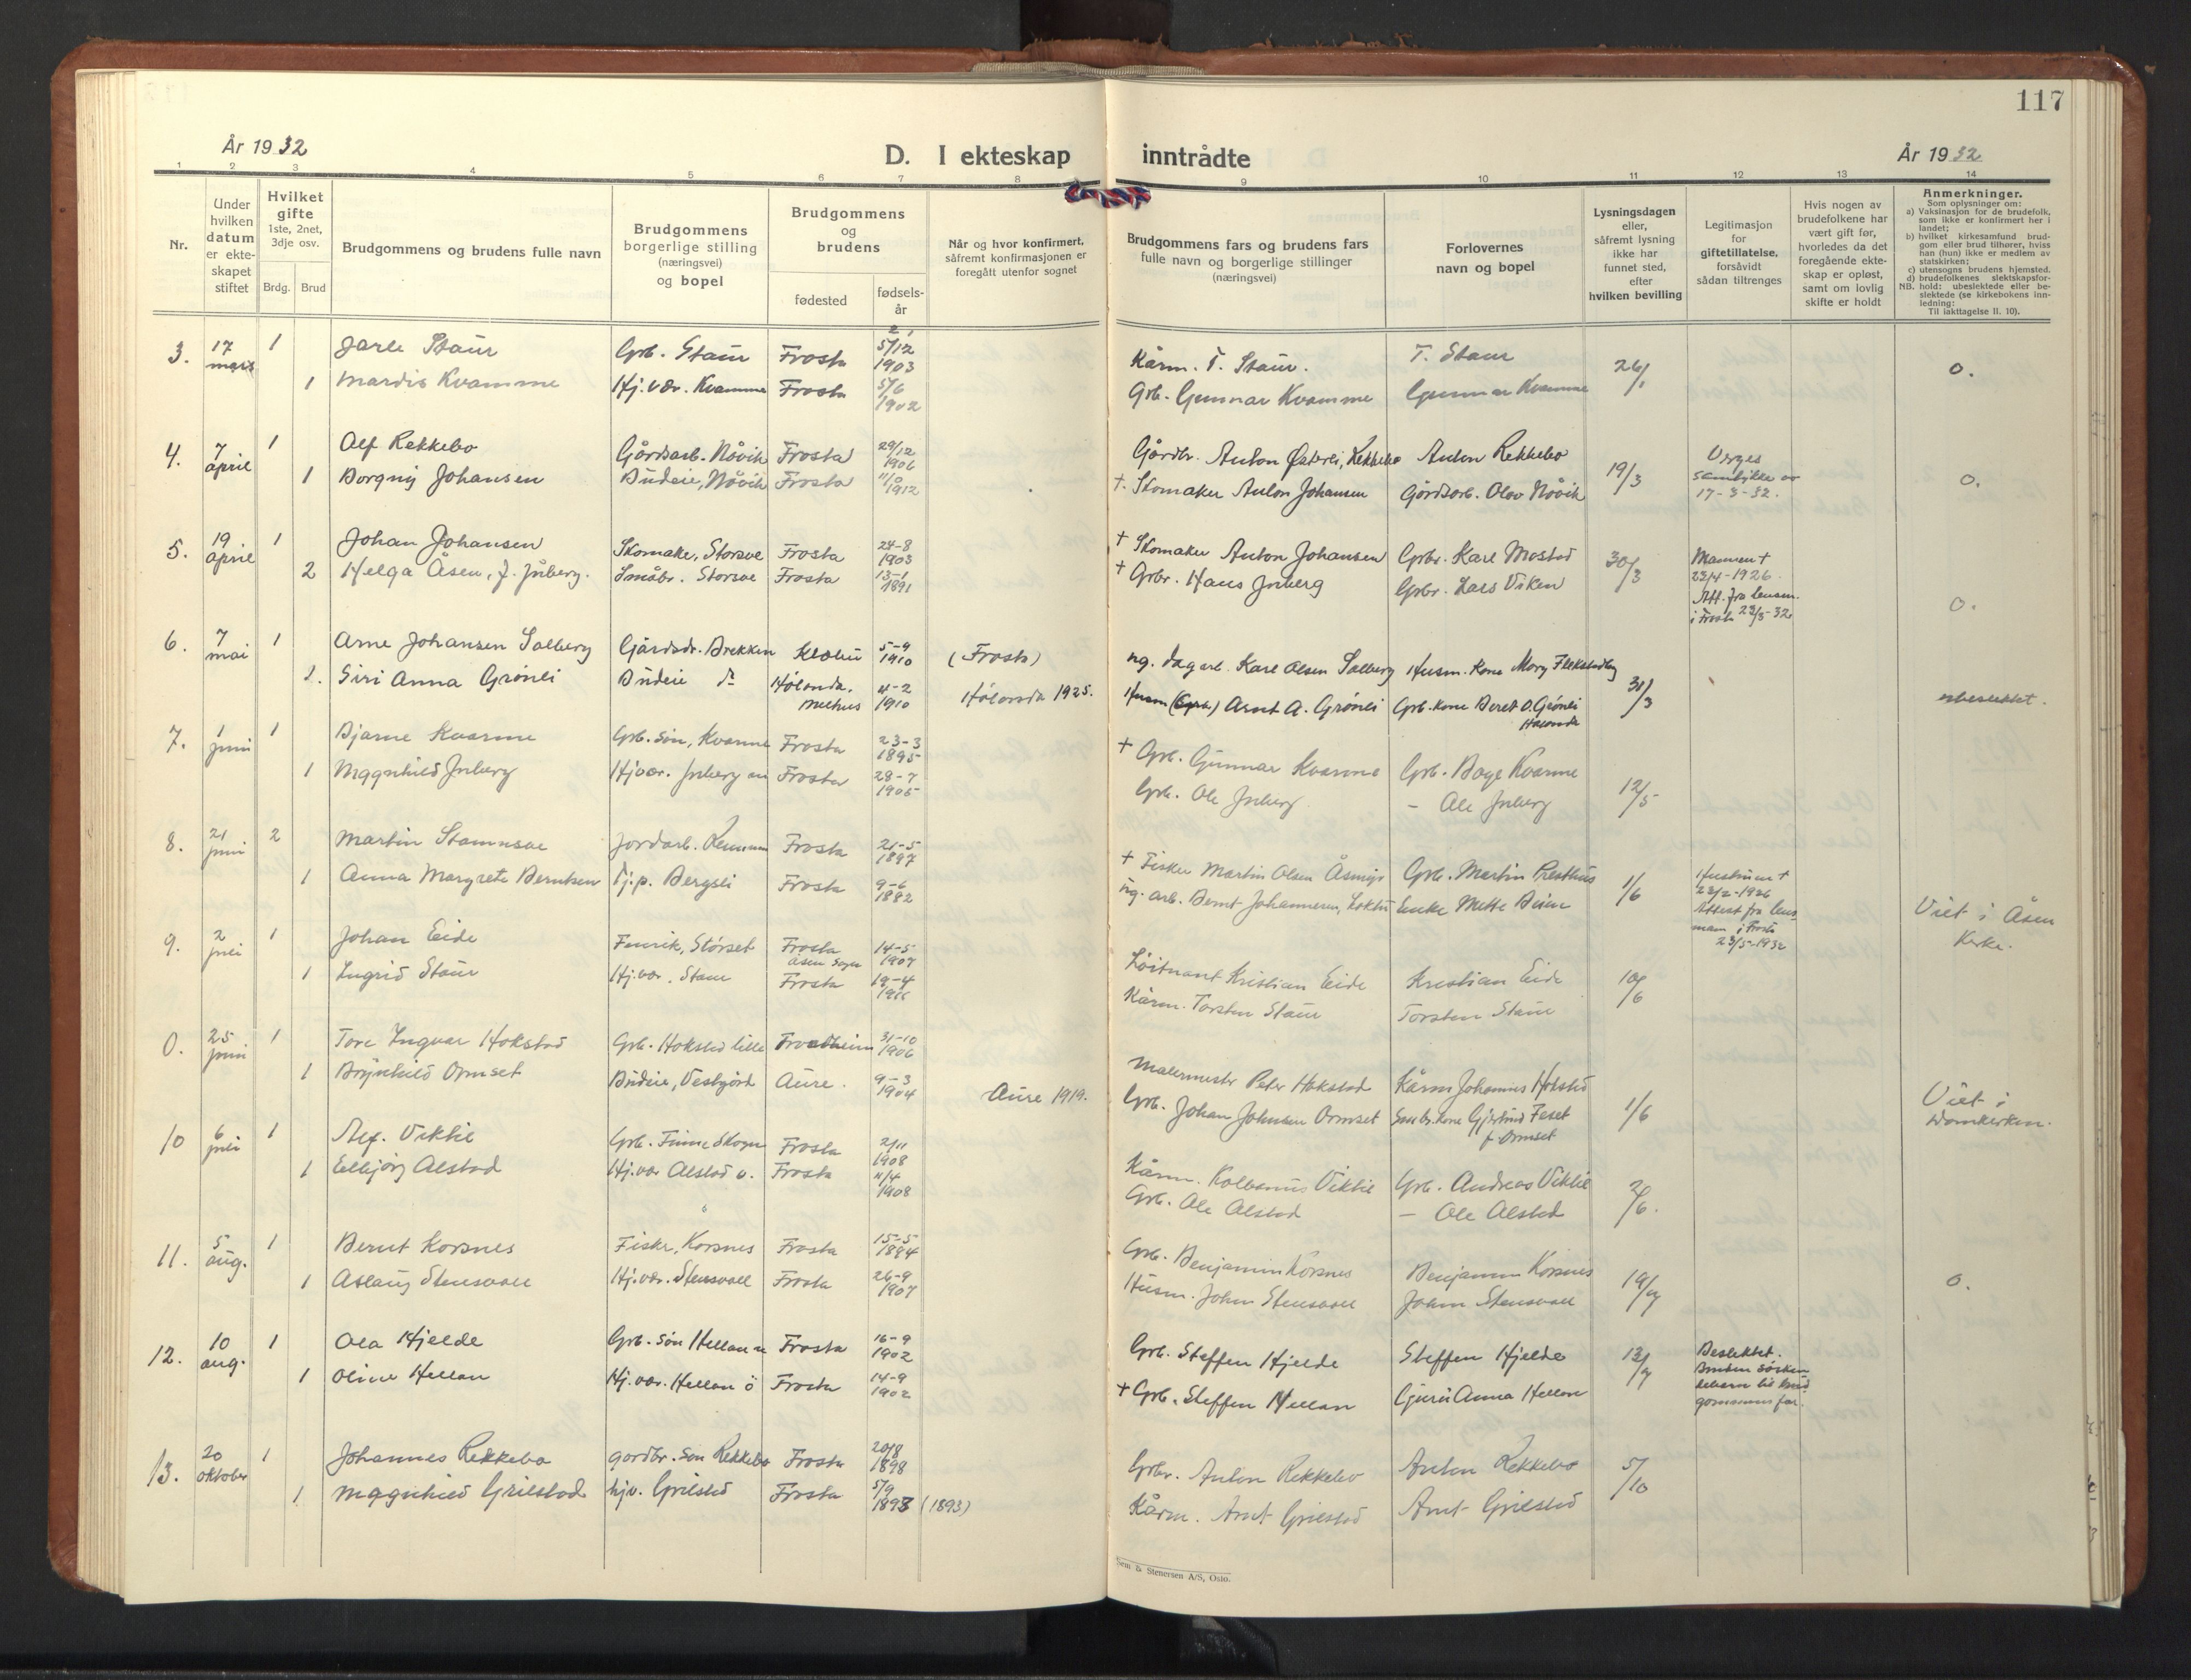 117
År 1932
D. I ekteskap inntrådte
År 1932
1 2 3 4 5 6 7 8 9 10 11 12 13 14
Nr.
Under hvilken datum er ekte-skapet stiftet
Hvilket gifte 1ste, 2net, 3dje osv.
Brdg. Brud
Brudgommens og brudens fulle navn
Brudgommens borgerlige stilling (næringsvei) og bopel
Brudgommens og brudens
fødested
fødsels-år
Når og hvor konfirmert, såfremt konfirmasjonen er foregått utenfor sognet
Brudgommens fars og brudens fars fulle navn og borgerlige stillinger (næringsvei)
Forlovernes navn og bopel
Lysningsdagen eller, såfremt lysning ikke har funnet sted, efter hvilken bevilling
Legitimasjon for giftetillatelse, forsåvidt sådan tiltrenges
Hvis nogen av brudefolkene har vært gift før, hvorledes da det foregående ekte-skap er opløst, samt om lovlig skifte er holdt
Anmerkninger.
Som oplysninger om:
a) Vaksinasjon for de brudefolk, som ikke er konfirmert her i landet;
b) hvilket kirkesamfund brud-gom eller brud tilhører, hviss han (hun) ikke er medlem av statskirken;
c) utensogns brudens hjemsted.
d) brudefolkenes slektskapsfor-hold: ubeslektede eller be-slektede (se kirkebokens inn-ledning:
NB.
Til iakttagelse II. 10).
3. 17 mars 1 Jarle Staur Grb. Staur Frosta 5/12 1903 Kårm. T. Staur. T. Staur 26/1 0.
1 Mardis Kvamme Hj.vær. Kvamme Frosta 5/6 1902 Grb. Gunnar Kvamme Gunnar Kvamme
4. 7 april 1 Alf Rekkebo Gårdsarb. Nåvik Frosta 29/12 1906 Gårdbr. Anton Rekkebo Anton Rekkebo 19/3 Verges samtykke av 17-3-32. 0.
1 Borgny Johansen Budeie, Nåvik Frosta 1912 +. Skomaker Anton Johansen Gårdsarb. Olov Nåvik
5. 19 april 1 Johan Johansen Skomaker, Storsve Frosta 24-8 1903 + Skomaker Anton Johansen Grbr. Karl Mostad 30/3 Mannen + 23/4-1926. Att. fra lensm. i Frosta 23/3-32 0.
2 Helga Åsen, f. Juberg. Småbr. Storsve Frosta 13-1 1891 + Grbr. Hans Juberg Grbr. Lars Viken
6. 7 mai 1 Arne Johansen Solberg Gårdsdr. Brekken Klæbu 5-9 1910 (Frosta) ug. dagarb. Karl Olsen Solberg Husm. kone Mary 31/3 ubeslektet.
1. Siri Anna Grønli Budeie do Hølonda. Melhus 4-2 1910 Hølonda 1925. Husm (Grb.) Arnt A. Grønli Grb. kone Beret O. Grønli Hølonda
7. 1 juni 1 Bjarne Kvamme Grb. søn, Kvamme Frosta 23-3 1895 + Grb. Gunnar Kvamme Grb. Bage Kvamme 12/5
1 Magnhild Juberg Hj.vær. Juberg Frosta 28-7 1905 Grb. Ole Juberg. – Ole Juberg
8. 21 juni 2 Martin Stamnsve Jordarb. Frosta 21-5 1897 + Fisker Martin Olsen Grb. Martin Presthus 1/6 Hustrun + 23/2-1926 Attest fra lens-mann i Frosta 23/5-1932 Viet i Åsen Kirke.
1 Anna Margrete Berntsen Tj.p. Bergsli Frosta 9-6 1882 ug. arb. Bernt Johannesen, Enke Mette
9. 2 juli 1 Johan Eide Fenrik, Størset Frosta Åsen Sogn 14-5 1907 Løitnant Kristian Eide Kristian Eide 10/6
1 Ingrid Staur Hj.vær. Staur Frosta 19-4 Kårm. Torsten Staur Torsten Staur
0. 25 juni 1 Tore Ingvar Hokstad Grb. Hokstad lille Trondheim 31-10 1906 Malermester Peter Hokstad Kårm. Johannes Hokstad 1/6 Viet i Domkirken.
1 Brynhild Ormset Budeie, Aure. 9-3 1904 Aure 1919. Grb. Johan Johnsen Ormset Småbr. kone Gjertrud Feset f. Ormset
10 6 juli 1 Alf. Viktil Grb. Finne Skogn Frosta 2/11 1908 Kårm. Kolbanus Viktil Grb. Andreas Viktil
1 Eldbjørg Alstad Hj.vær Alstad ø. Frosta 11/4 1908 Grb. Ole Alstad – Ole Alstad
11. 5 aug. 1 Bernt Korsnes Fisker, Korsnes Frosta 15-5 1894 Grb. Benjamin Korsnes Benjamin Korsnes 19/7 0.
1 Aslaug Stensvoll Hj.vær. Stensvoll Frosta 26-9 1907 Husm. John Stensvoll John Stensvoll
12. 10 aug. 1 Ola Hjelde Grb. søn Hellan Frosta 16-9 1902 Grb. Steffen Hjelde Steffen Hjelde 13/7 Beslektet. Bruden søsken-debarn til brud-gommens far.
1 Oline Hellan Hj.vær. Hellan ø Frosta 14-9 1902 + Grb. Steffen Hellan Guri Anna Hellan
13. 20 oktober 1 Johannes Rekkebo gardbr. søn Rekkebo Frosta 20/8 1898 Grbr. Anton Rekkebo Anton Rekkebo 5/10
1 Magnhild Grilstad hjv. Grilstad Frosta 5/9 1893 (1893) Kårm. Arnt Grilstad Arnt Grilstad
Sem & Stenersen A/S, Oslo.